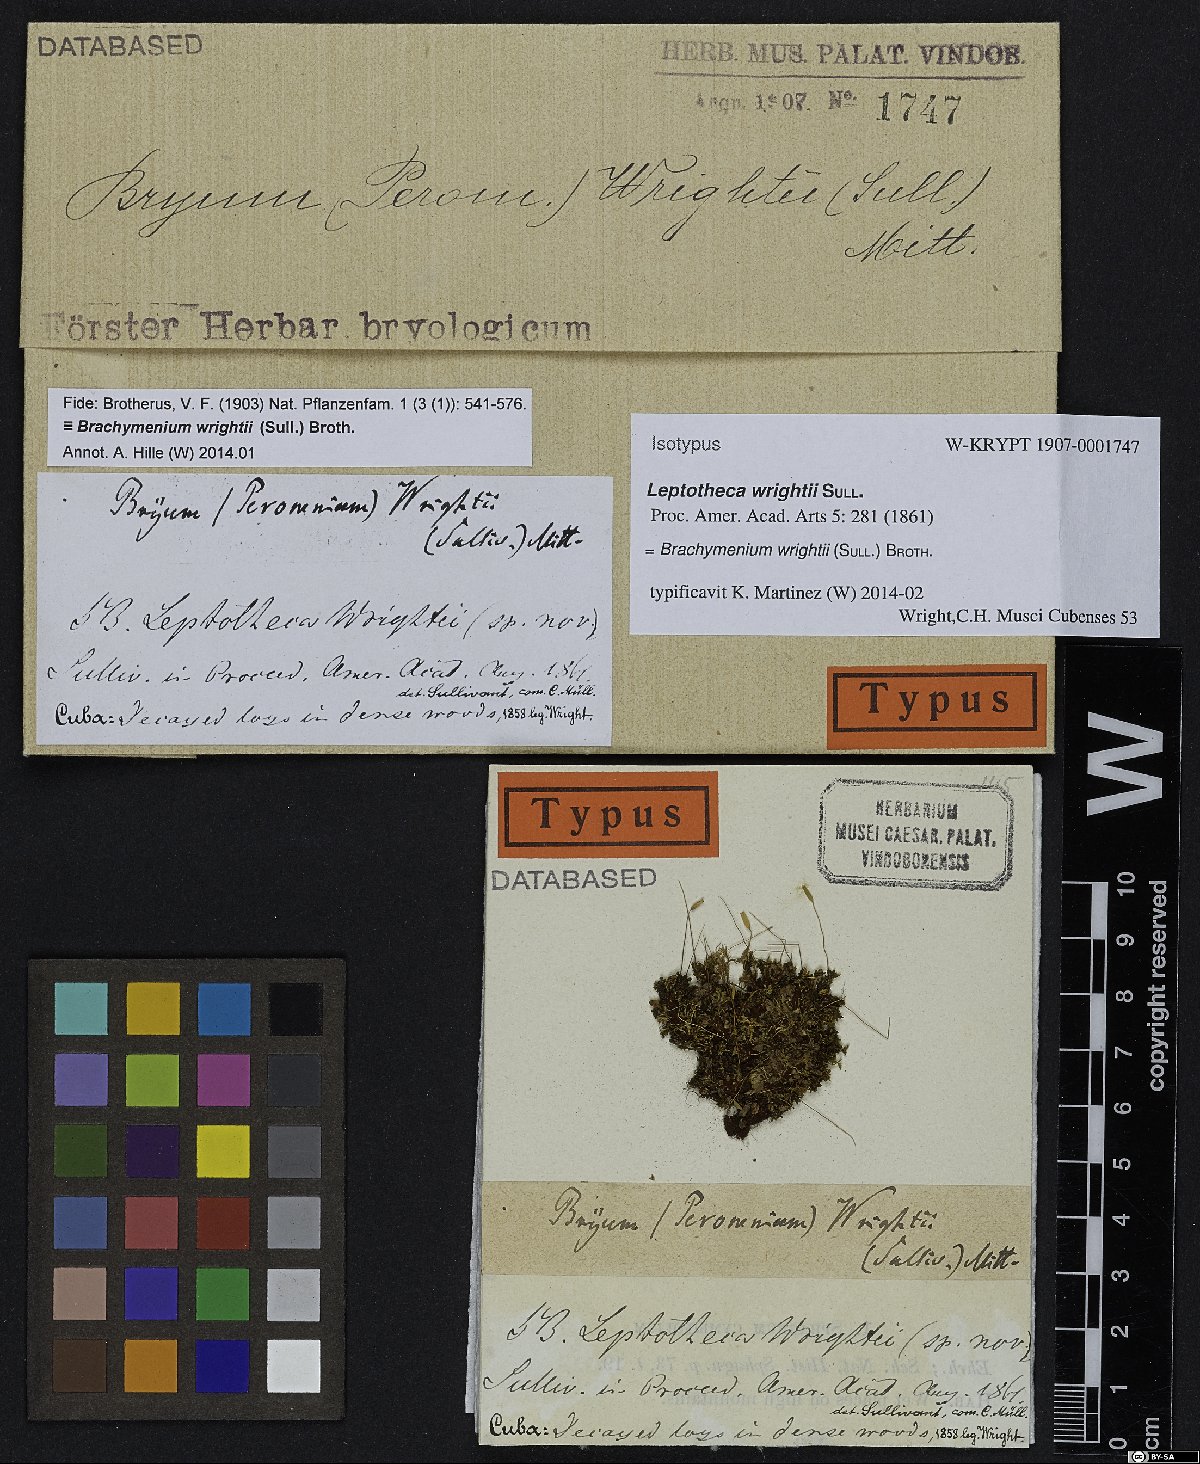 DATABASED
HERB. MUS. PALAT. VINDOB.
Acqu. 1907. No. 1747
Bryum (Perom.) Wrightii (Sull.)
Mitt.
Förster Herbar. bryologicum
Fide: Brotherus, V. F. (1903) Nat. Pflanzenfam. 1 (3 (1)): 541-576.
≡ Brachymenium wrightii (Sull.) Broth.
Annot. A. Hille (W) 2014.01
Isotypus W-KRYPT 1907-0001747
Leptotheca wrightii SULL.
Proc. Amer. Acad. Arts 5: 281 (1861)
= Brachymenium wrightii (SULL.) BROTH.
typificavit K. Martinez (W) 2014-02
Wright,C.H. Musci Cubenses 53
Bryum (Peromnium) Wrightii
(Sulliv.) Mitt.
53. Leptotheca Wrightii (sp. nov.)
Sulliv. in Proceed. Amer. Acad. Aug. 1861.
det. Sullivant, com. C. Müll.
Cuba: Decayed logs in dense woods, 1858 leg. Wright.
Typus
Typus
HERBARIUM
MUSEI CAESAR. PALAT.
VINDOBONENSIS
DATABASED
Bryum (Peromnium) Wrightii
(Sulliv.) Mitt.
53. Leptotheca Wrightii (sp. nov.)
Sulliv. in Proceed. Amer. Acad. Aug. 1861.
det. Sullivant, com. C. Müll.
Cuba: Decayed logs in dense woods, 1858 leg. Wright.
W
10
9
8
7
6
5
4
3
2
1
0
cm
copyright reserved
BY-SA